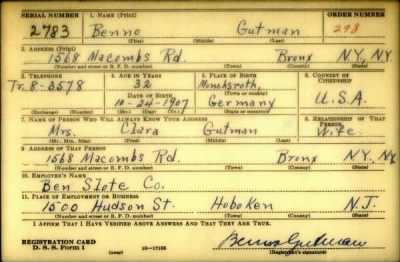 SERIAL NUMBER 1. NAME (Print) ORDER NUMBER
2783 Benno Gutman 298
(First) (Middle) (Last)
2. ADDRESS (Print)
1568 Macombs Rd. Bronx N.Y. N.Y.
(Number and street or R. F. D. number) (Town) (County) (State)
3. TELEPHONE 4. AGE IN YEARS 5. PLACE OF BIRTH 6. COUNTRY OF CITIZENSHIP
Tr. 8-3578 32
DATE OF BIRTH (Town or county)
10-24-1907 Germany U.S.A.
(Exchange) (Number) (Mo.) (Day) (Yr.) (State or country)
7. NAME OF PERSON WHO WILL ALWAYS KNOW YOUR ADDRESS 8. RELATIONSHIP OF THAT PERSON
Mrs. Clara Gutman Wife
(Mr., Mrs., Miss) (First) (Middle) (Last)
9. ADDRESS OF THAT PERSON
1568 Macombs Rd. Bronx N.Y. N.Y.
(Number and street or R. F. D. number) (Town) (County) (State)
10. EMPLOYER'S NAME
Ben Slote Co.
11. PLACE OF EMPLOYMENT OR BUSINESS
1500 Hudson St. Hoboken N.J.
(Number and street or R. F. D. number) (Town) (County) (State)
I AFFIRM THAT I HAVE VERIFIED ABOVE ANSWERS AND THAT THEY ARE TRUE.
REGISTRATION CARD
D. S. S. Form 1 (over) 16—17105 Benno Gutman
(Registrant's signature)